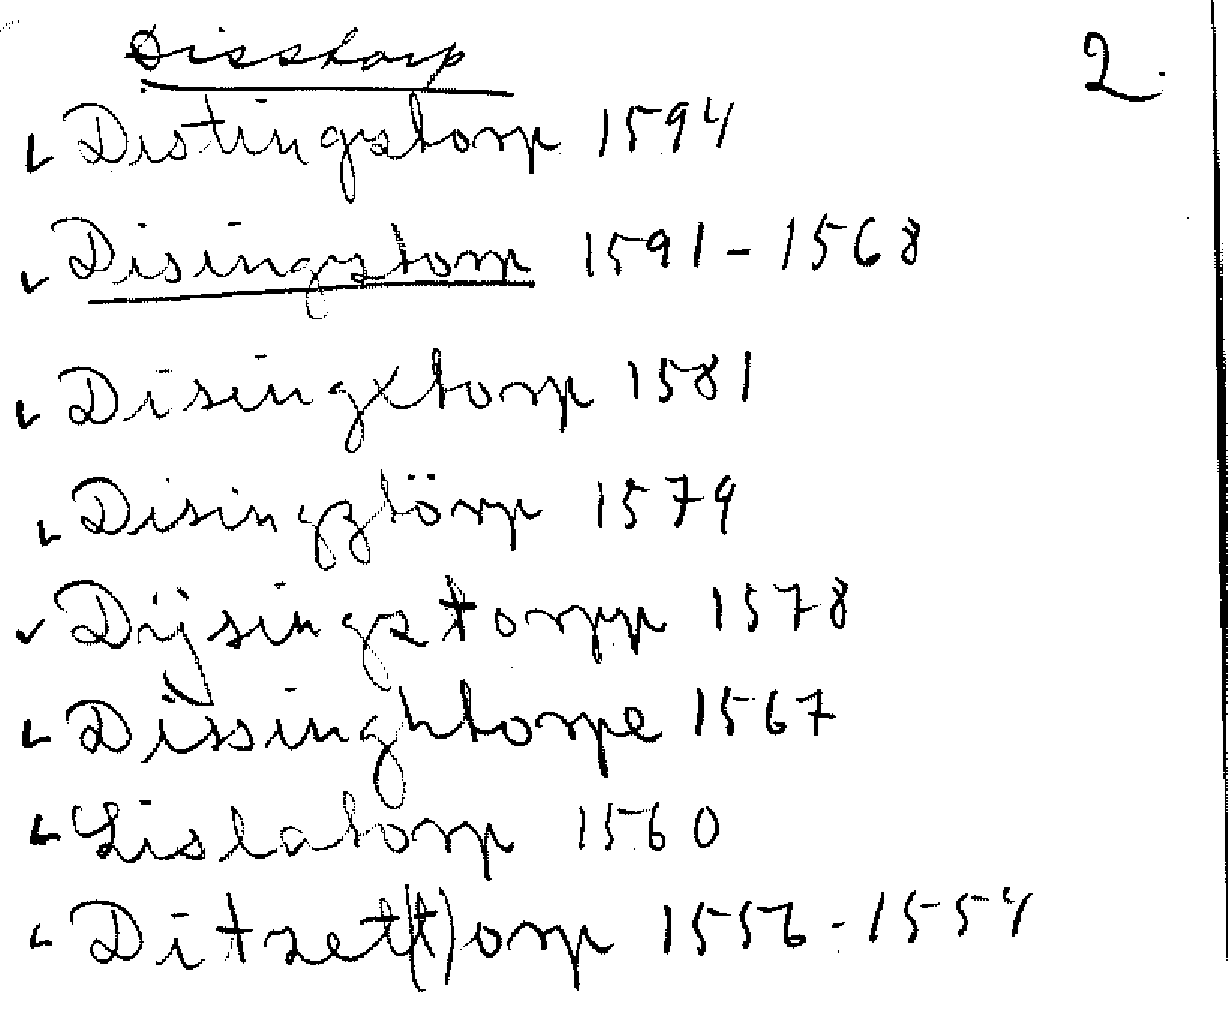 Disstorp 2.
Distingstorp 1594
Disingstorp 1591-1568
Disingxtorp 1581
Disingztörp 1579
Dijsingstorpp 1578
Dissinghtorpe 1567
Lislatorp 1560
Ditzett(t)orp 1556-1554